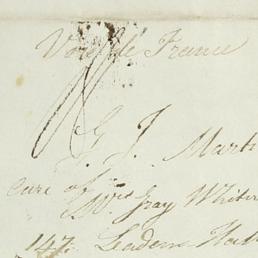 Voie de France
G. J. Mart
Care of
Mrs Gray Whitin
147. Leaden Hall